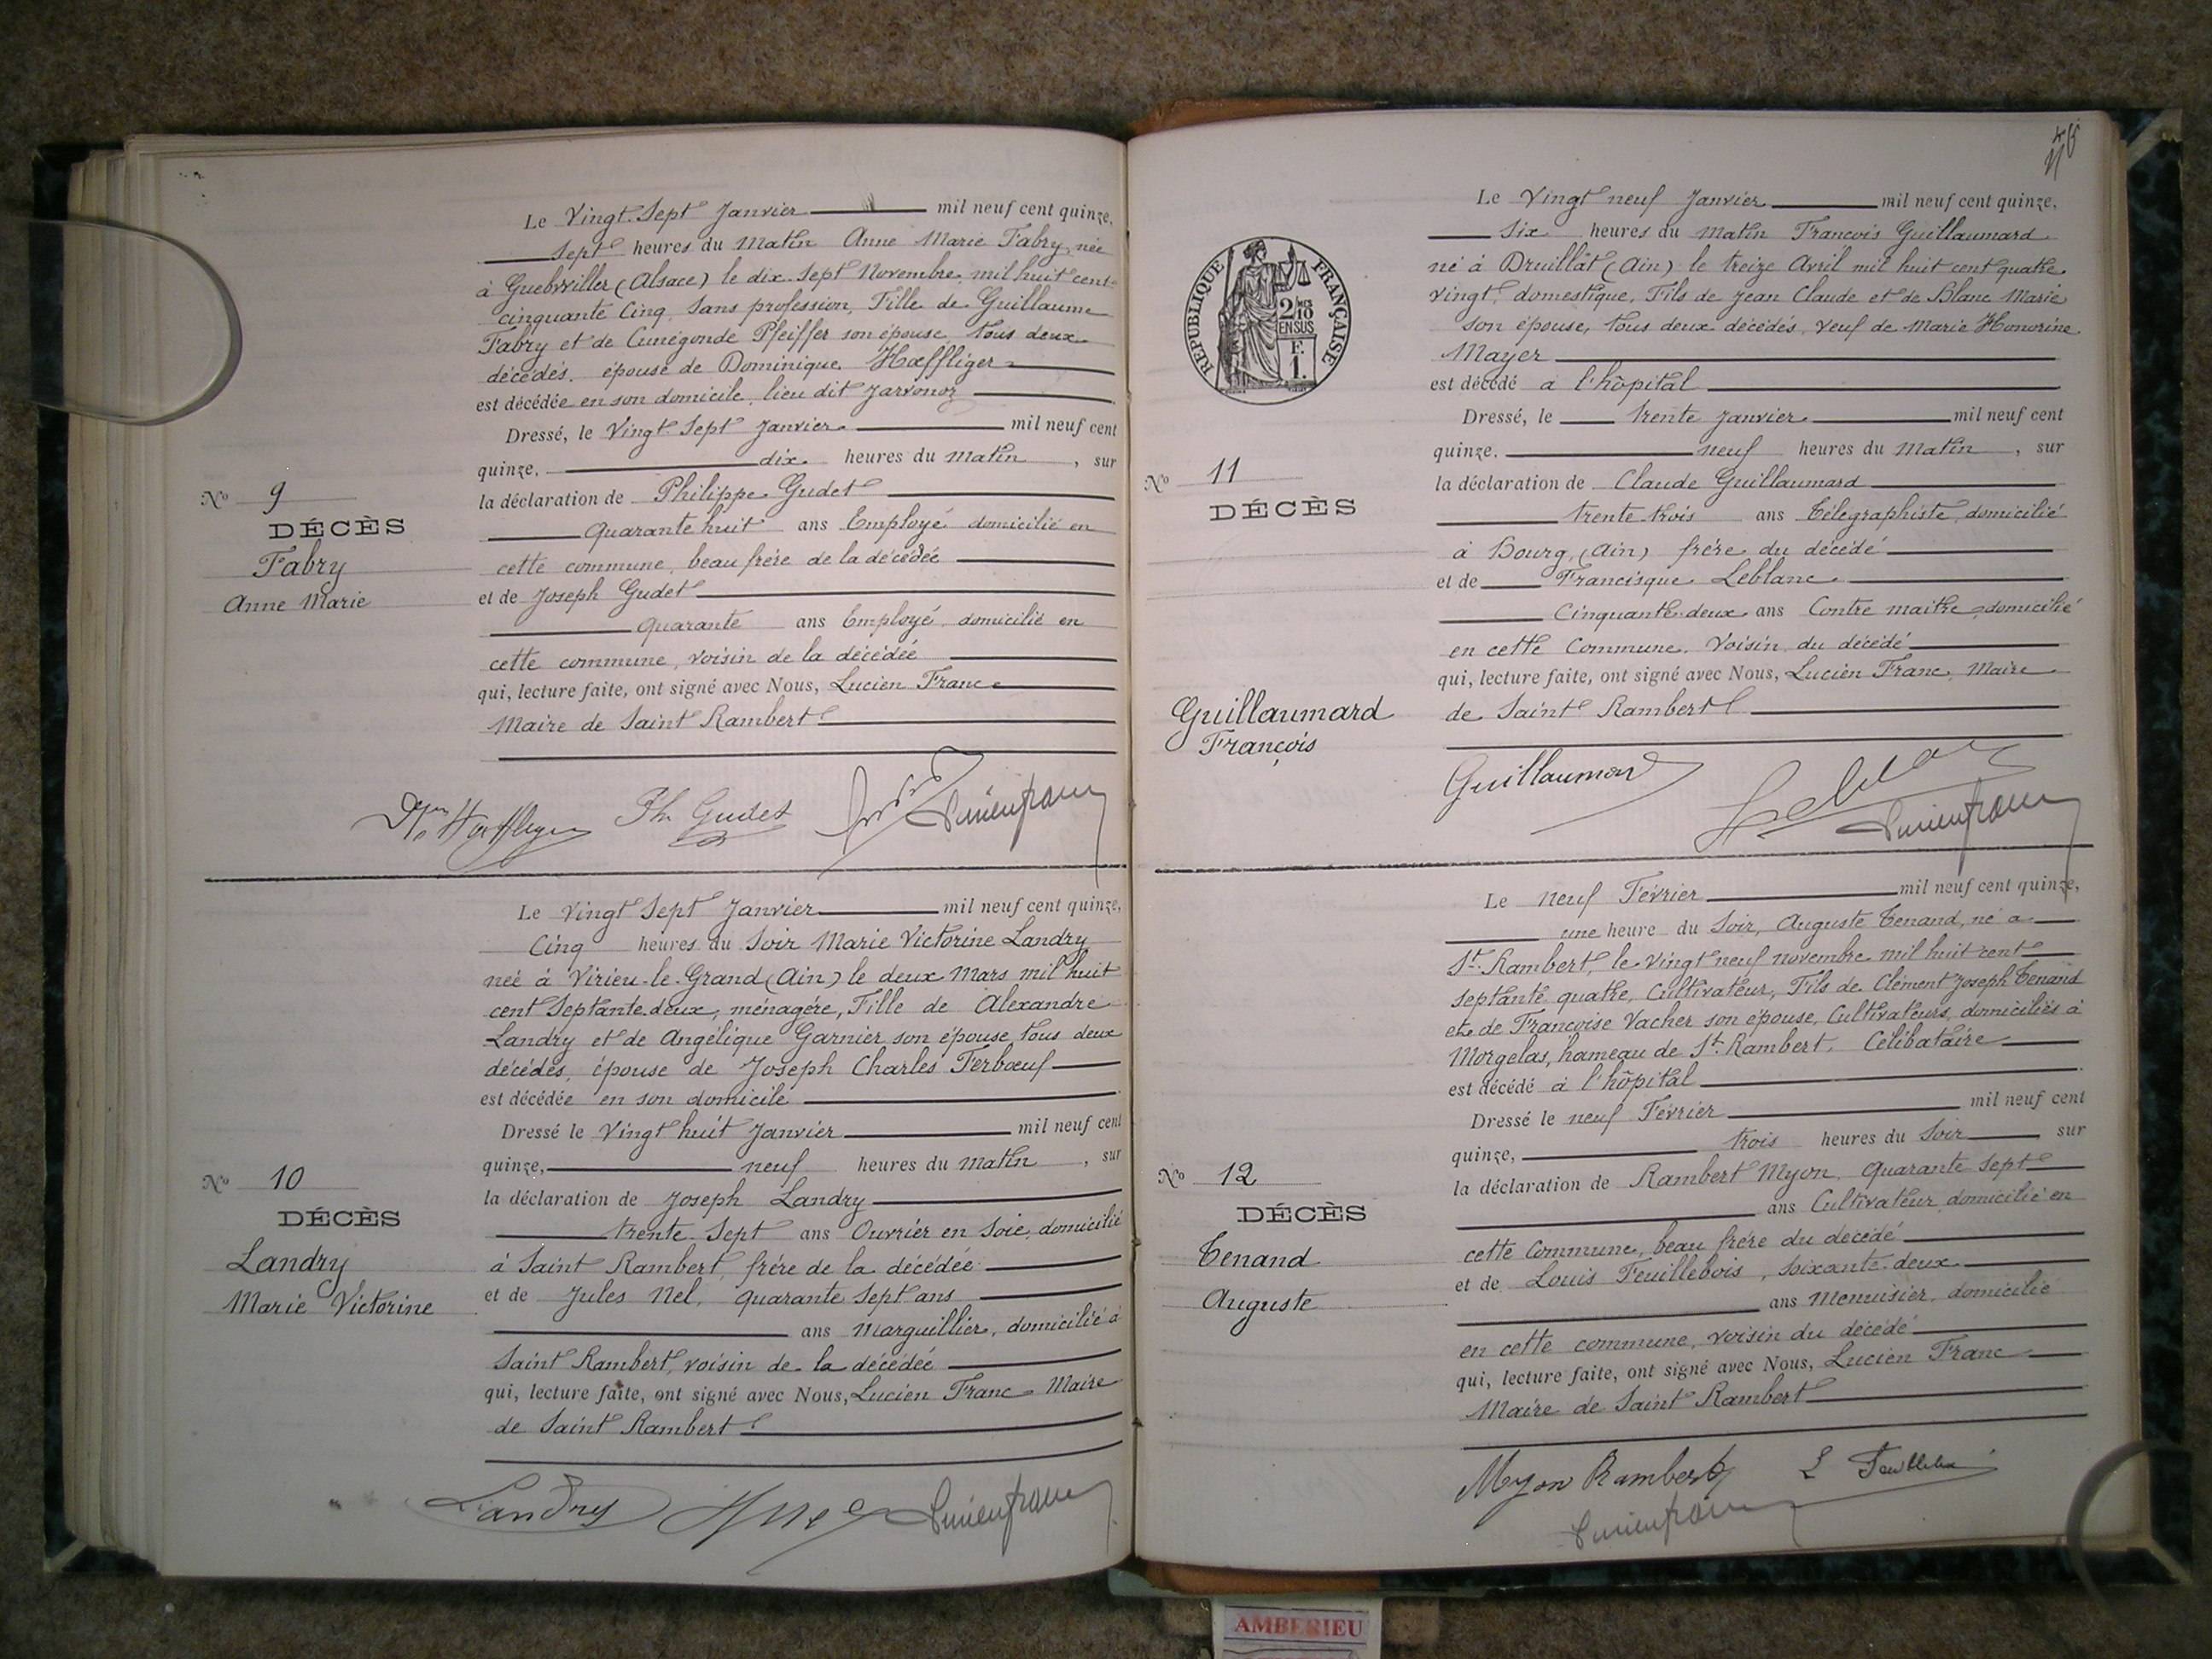 Le Vingt Sept Janvier mil neuf cent quinze,
Sept heures du Matin Anne Marie Fabry née
à Guebwiller (Alsace) le dix-sept Novembre mil huit cent
cinquante Cinq, Sans profession, Fille de Guillaume
Fabry et de Cunégonde Pfeiffer son épouse tous deux
décédés. épouse de Dominique Hœffliger
est décédée en son domicile, lieu dit Jarvonoz
Dressé, le Vingt Sept Janvier mil neuf cent
quinze, dix heures du Matin, sur
la déclaration de Philippe Gudet
Quarante huit ans Employé domicilié en
cette commune, beau frère de la décédée
et de Joseph Gudet
quarante ans Employé domicilié en
cette commune, voisin de la décédée
qui, lecture faite, ont signé avec Nous, Lucien Franc
Maire de Saint Rambert
No 9
DÉCÈS
Fabry
Anne Marie
Ph Gudet
Le Vingt Sept Janvier mil neuf cent quinze,
Cinq heures du Soir Marie Victorine Landry
née à Virieu-le-Grand (Ain) le deux Mars mil huit
cent Septante deux, ménagère, Fille de Alexandre
Landry et de Angélique Garnier son épouse tous deux
décédés, épouse de Joseph Charles Ferbœuf
est décédée en son domicile
Dressé le Vingt huit Janvier mil neuf cent
quinze, neuf heures du Matin, sur
la déclaration de Joseph Landry
trente Sept ans Ouvrier en Soie, domicilié
à Saint Rambert, frère de la décédée
et de Jules Nel, quarante Sept ans
ans Marguillier, domicilié à
Saint Rambert, voisin de la décédée
qui, lecture faite, ont signé avec Nous, Lucien Franc Maire
de Saint Rambert
No 10
DÉCÈS
Landry
Marie Victorine
Landry
Le Vingt neuf Janvier mil neuf cent quinze,
Six heures du Matin François Guillaumard
né à Druillat (Ain) le treize Avril mil huit cent quatre
vingt, domestique, Fils de Jean Claude et de Blanc Marie
son épouse, tous deux décédés, veuf de Marie Honorine
Mayer
est décédé à l'hôpital
Dressé, le trente Janvier mil neuf cent
quinze, neuf heures du Matin, sur
la déclaration de Claude Guillaumard
trente trois ans Télégraphiste, domicilié
à Bourg, (Ain) frère du décédé
et de Francisque Leblanc
Cinquante-deux ans Contre maitre, domicilié
en cette Commune, Voisin du décédé
qui, lecture faite, ont signé avec Nous, Lucien Franc, Maire
de Saint Rambert
REPUBLIQUE FRANÇAISE
2/10
EN SUS
F.
1.
No 11
DÉCÈS
Guillaumard
François
Guillaumard
Le neuf Février mil neuf cent quinze,
une heure du Soir, Auguste Tenand, né à
St. Rambert, le vingt neuf novembre mil huit cent
septante quatre, Cultivateur, Fils de Clément Joseph Tenand
et de Françoise Vacher son épouse, Cultivateurs, domiciliés à
Morgelas, hameau de St. Rambert, Célibataire
est décédé à l'hôpital
Dressé le neuf Février mil neuf cent
quinze, trois heures du Soir sur
la déclaration de Rambert Myon, quarante sept
ans Cultivateur domicilié en
cette Commune, beau frère du décédé
et de Louis Feuillebois, soixante-deux
ans Menuisier, domicilié
en cette commune, voisin du décédé
qui, lecture faite, ont signé avec Nous, Lucien Franc
Maire de Saint Rambert
No 12
DÉCÈS
Tenand
Auguste
Myon Rambert
AMBERIEU